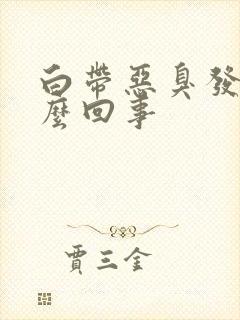 白帶惡臭發
麼回事
賈三金